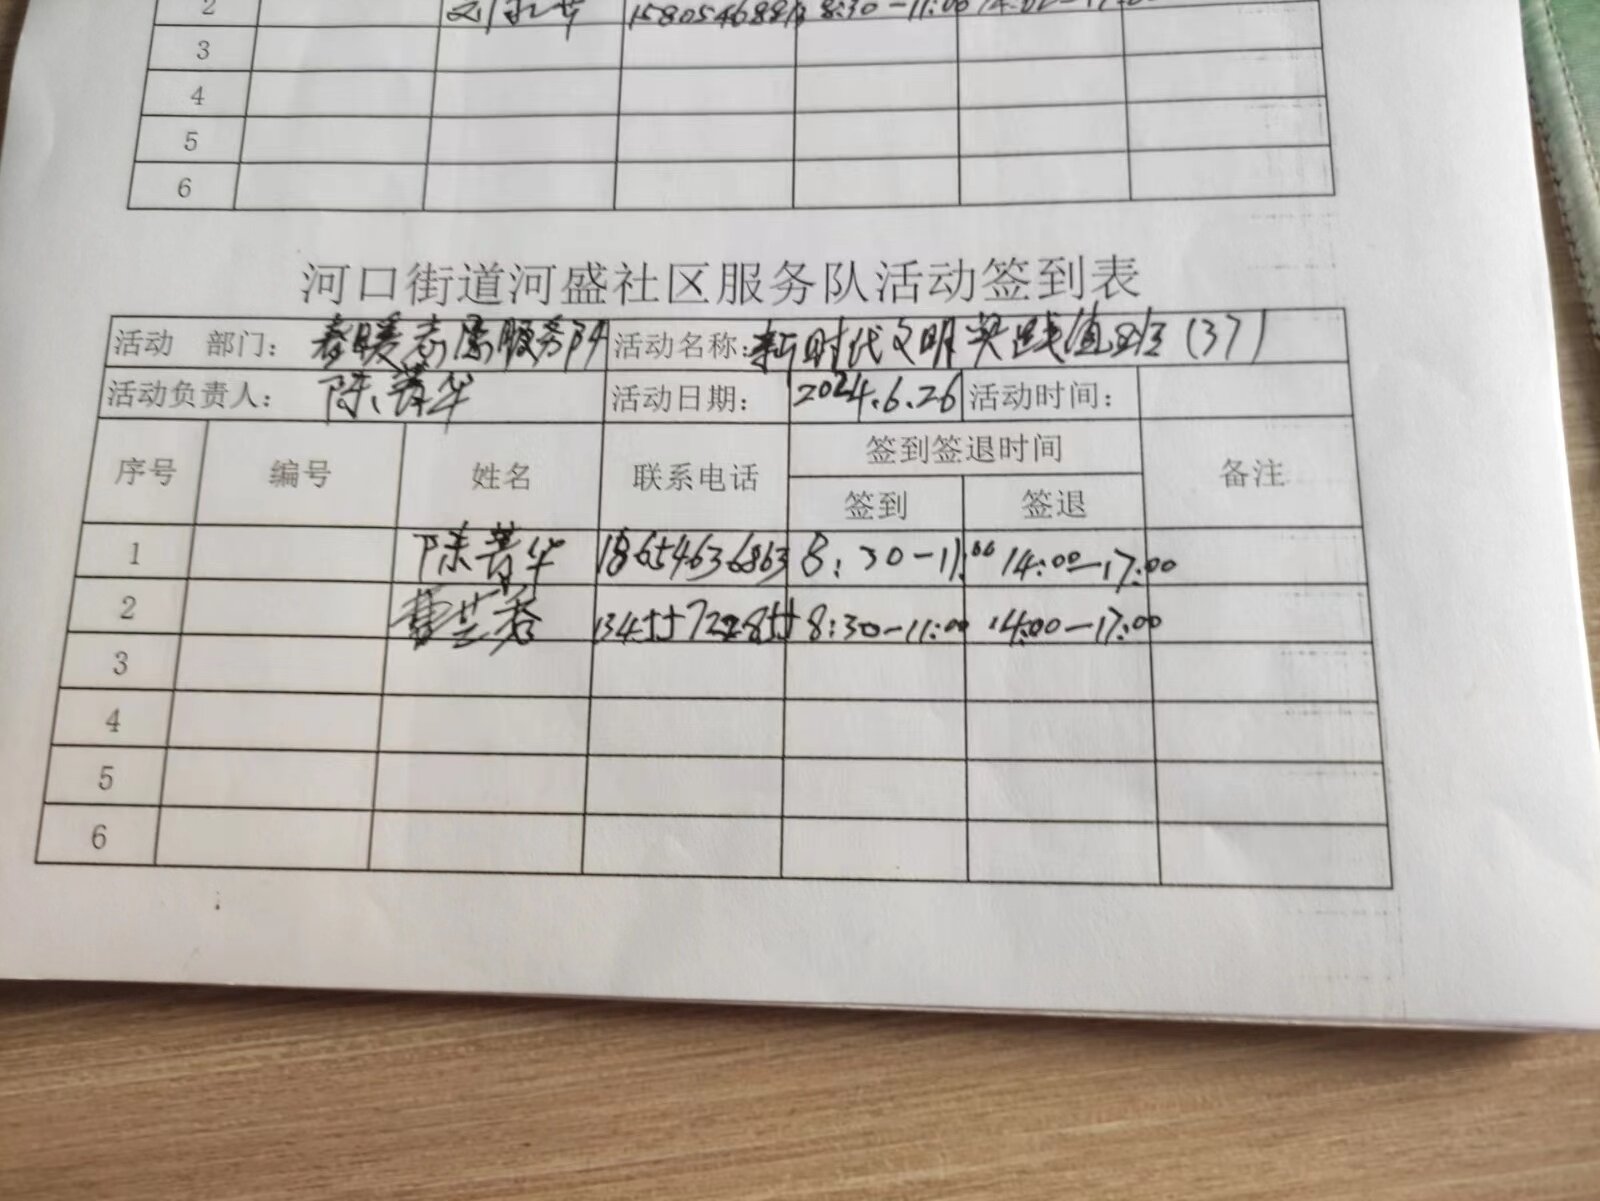 2 8:30-11:00
3
4
5
6
河口街道河盛社区服务队活动签到表
活动 部门: 春暖志愿服务队 活动名称: 新时代文明实践值班(37)
活动负责人: 陈菁华 活动日期: 2024.6.26 活动时间:
序号 编号 姓名 联系电话 签到签退时间 备注
签到 签退
1 陈菁华 18654636863 8:30-11:00 14:00-17:00
2 曹兰香 13455722855 8:30-11:00 14:00-17:00
3
4
5
6